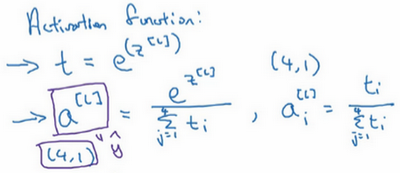 Activation function:
→ t = e^(z^[L])
(4,1)
→ a^[L] = e^z^[L] / ∑_{j=1}^{4} t_i , a_i^[L] = t_i / ∑_{j=1}^{4} t_i
(4,1) ŷ